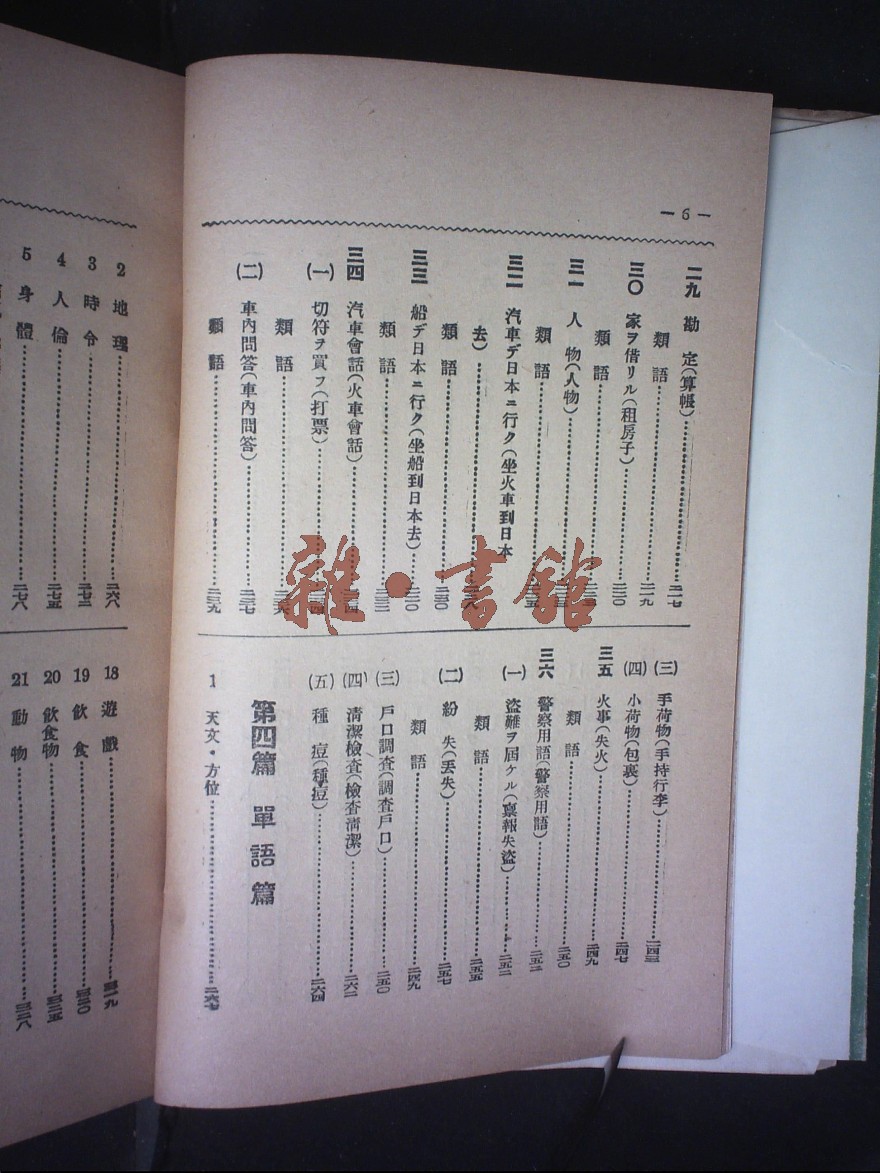 — 6 —
二九 勘 定(算帳)……二一七
類 語……二一九
三〇 家ヲ借リル(租房子)……二二〇
類 語
三一 人 物(人物)
類 語
三二 汽車デ日本ニ行ク(坐火車到日本
去)
類 語……二三〇
三三 船デ日本ニ行ク(坐船到日本去)
類 語
三四 汽車會話(火車會話)
(一) 切符ヲ買フ(打票)
類 語……二三六
(二) 車內問答(車內問答)……二三七
類 語……二三九
(三) 手荷物(手持行李)……二四三
(四) 小荷物(包裹)……二四七
三五 火事(失火)……二四九
類 語……二五〇
三六 警察用語(警察用語)……二五二
(一) 盜難ヲ屆ケル(稟報失盜)……二五二
類 語……二五五
(二) 紛 失(丟失)……二五七
類 語……二四九
(三) 戶口調査(調査戶口)……二五〇
(四) 清潔檢査(檢査清潔)……二六二
(五) 種 痘(種痘)……二六四
第四篇 單語篇
1 天文・方位……二六七
2 地理……二六八
3 時令……二七二
4 人倫……二七五
5 身體……二七八
18 遊戲……三一九
19 飲食……三二〇
20 飲食物……三二五
21 動物……三二八
雜·書館